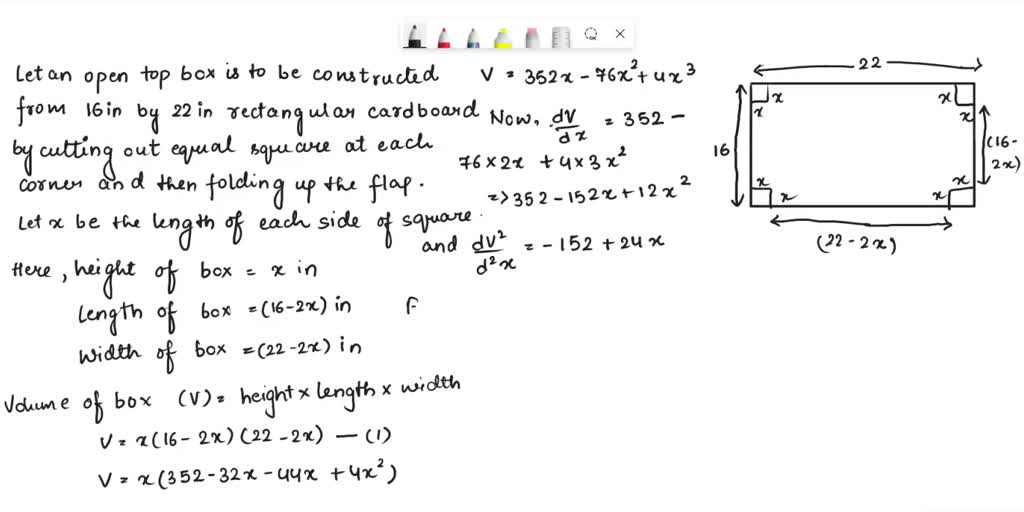 Let an open top box is to be constructed
from 16in by 22in rectangular cardboard
by cutting out equal square at each
corner and then folding up the flap.
Let x be the length of each side of square.
Here, height of box = x in
Length of box = (16-2x) in
Width of box = (22-2x) in
Volume of box (V) = height x length x width
V = x(16-2x)(22-2x) — (1)
V = x(352-32x-44x+4x²)
V = 352x-76x²+4x³
Now, dV/dx = 352-
76×2x + 4×3x²
=> 352-152x+12x²
and dV²/d²x = -152+24x
F
22
x x
x x
16
(16-
2x)
x x
x x
(22-2x)